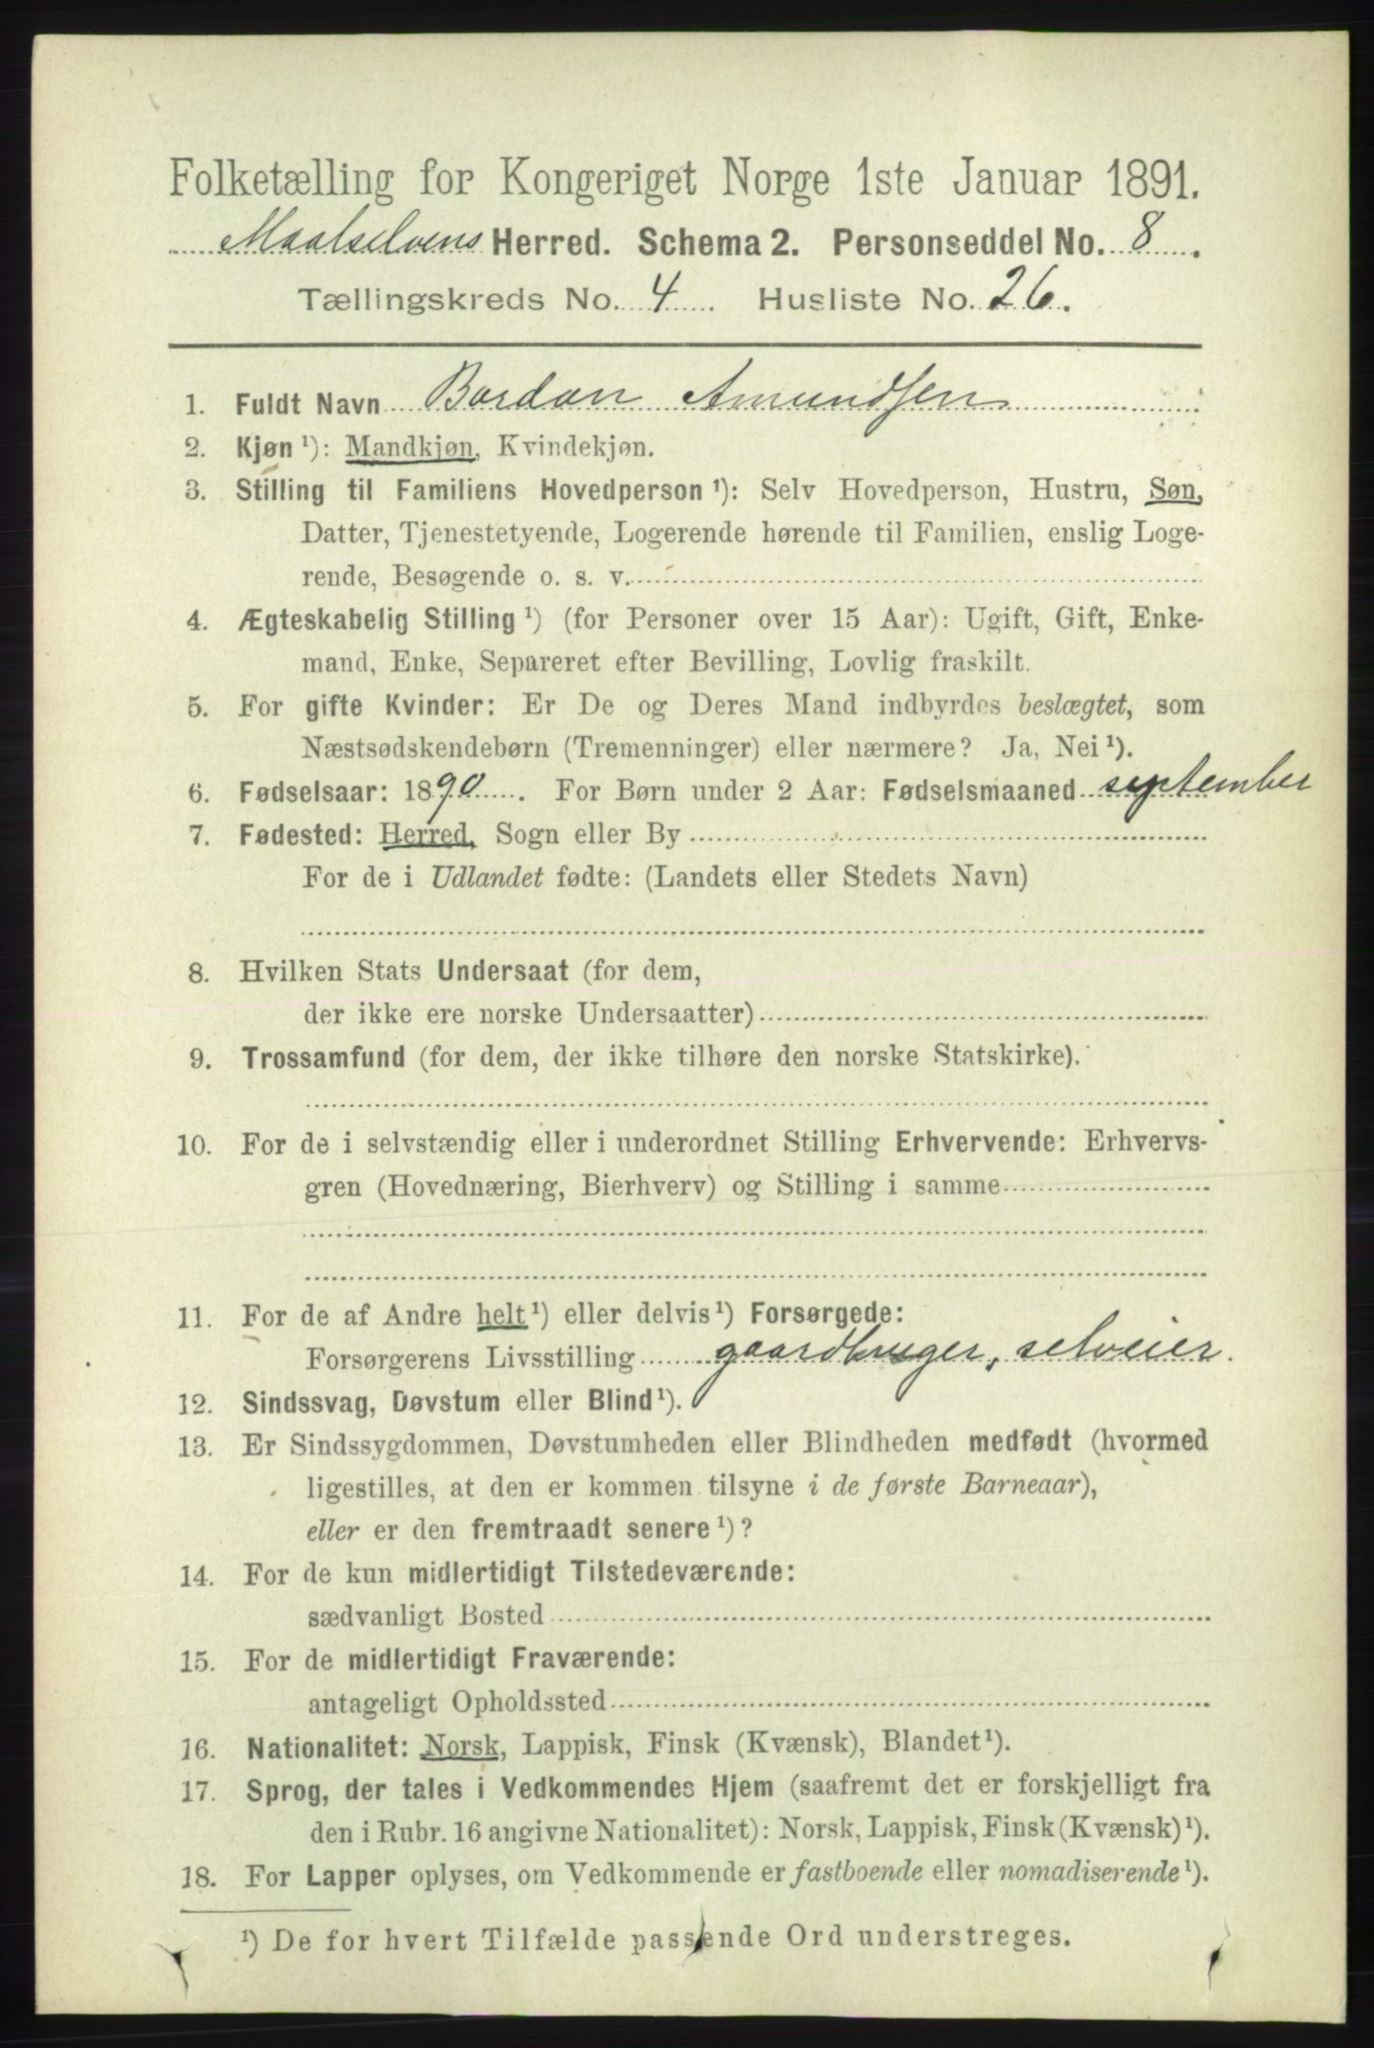 Folketælling for Kongeriget Norge 1ste Januar 1891.
Maalselvens Herred. Schema 2. Personseddel No. 8.
Tællingskreds No. 4. Husliste No. 26.
1. Fuldt Navn Bardon Amundsen
2. Kjøn ¹): Mandkjøn, Kvindekjøn.
3. Stilling til Familiens Hovedperson ¹): Selv Hovedperson, Hustru, Søn,
Datter, Tjenestetyende, Logerende hørende til Familien, enslig Loge-
rende, Besøgende o. s. v.
4. Ægteskabelig Stilling ¹) (for Personer over 15 Aar): Ugift, Gift, Enke-
mand, Enke, Separeret efter Bevilling, Lovlig fraskilt.
5. For gifte Kvinder: Er De og Deres Mand indbyrdes beslægtet, som
Næstsødskendebørn (Tremenninger) eller nærmere? Ja, Nei ¹).
6. Fødselsaar: 1890. For Børn under 2 Aar: Fødselsmaaned september
7. Fødested: Herred, Sogn eller By
For de i Udlandet fødte: (Landets eller Stedets Navn)
8. Hvilken Stats Undersaat (for dem,
der ikke ere norske Undersaatter)
9. Trossamfund (for dem, der ikke tilhøre den norske Statskirke).
10. For de i selvstændig eller i underordnet Stilling Erhvervende: Erhvervs-
gren (Hovednæring, Bierhverv) og Stilling i samme
11. For de af Andre helt ¹) eller delvis ¹) Forsørgede:
Forsørgerens Livsstilling gaardbruger, selveier.
12. Sindssvag, Døvstum eller Blind ¹).
13. Er Sindssygdommen, Døvstumheden eller Blindheden medfødt (hvormed
ligestilles, at den er kommen tilsyne i de første Barneaar),
eller er den fremtraadt senere ¹)?
14. For de kun midlertidigt Tilstedeværende:
sædvanligt Bosted
15. For de midlertidigt Fraværende:
antageligt Opholdssted
16. Nationalitet: Norsk, Lappisk, Finsk (Kvænsk), Blandet ¹).
17. Sprog, der tales i Vedkommendes Hjem (saafremt det er forskjelligt fra
den i Rubr. 16 angivne Nationalitet): Norsk, Lappisk, Finsk (Kvænsk) ¹).
18. For Lapper oplyses, om Vedkommende er fastboende eller nomadiserende ¹).
¹) De for hvert Tilfælde passende Ord understreges.